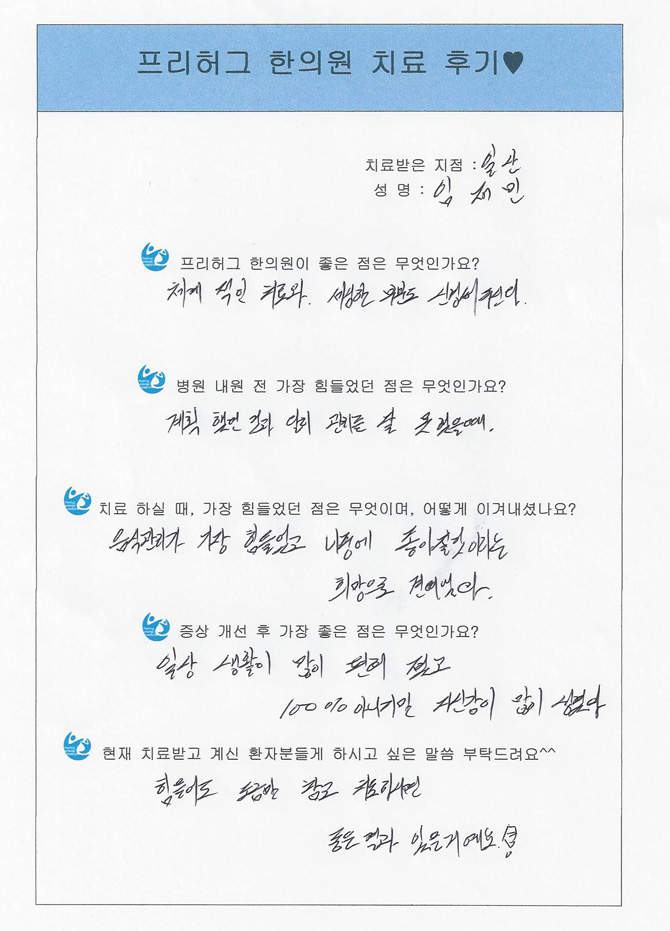 프리허그 한의원 치료 후기♥
치료받은 지점 : 일산
성 명 : 임 재 민
프리허그 한의원이 좋은 점은 무엇인가요?
체계 적인 치료와. 세심한 부분도 신경써주신다.
병원 내원 전 가장 힘들었던 점은 무엇인가요?
계획 했던 관리를 잘 못 했을때.
치료 하실 때, 가장 힘들었던 점은 무엇이며, 어떻게 이겨내셨나요?
음식관리가 가장 힘들었고 나중에 좋아질것이라는
희망으로 견뎌냈다.
증상 개선 후 가장 좋은 점은 무엇인가요?
일상 생활이 많이 편해 졌고
100%아니지만 자신감이 많이 생겼다
현재 치료받고 계신 환자분들게 하시고 싶은 말씀 부탁드려요^^
힘들어도 조금만 참고 치료하시면
좋은 결과 있을거예요.